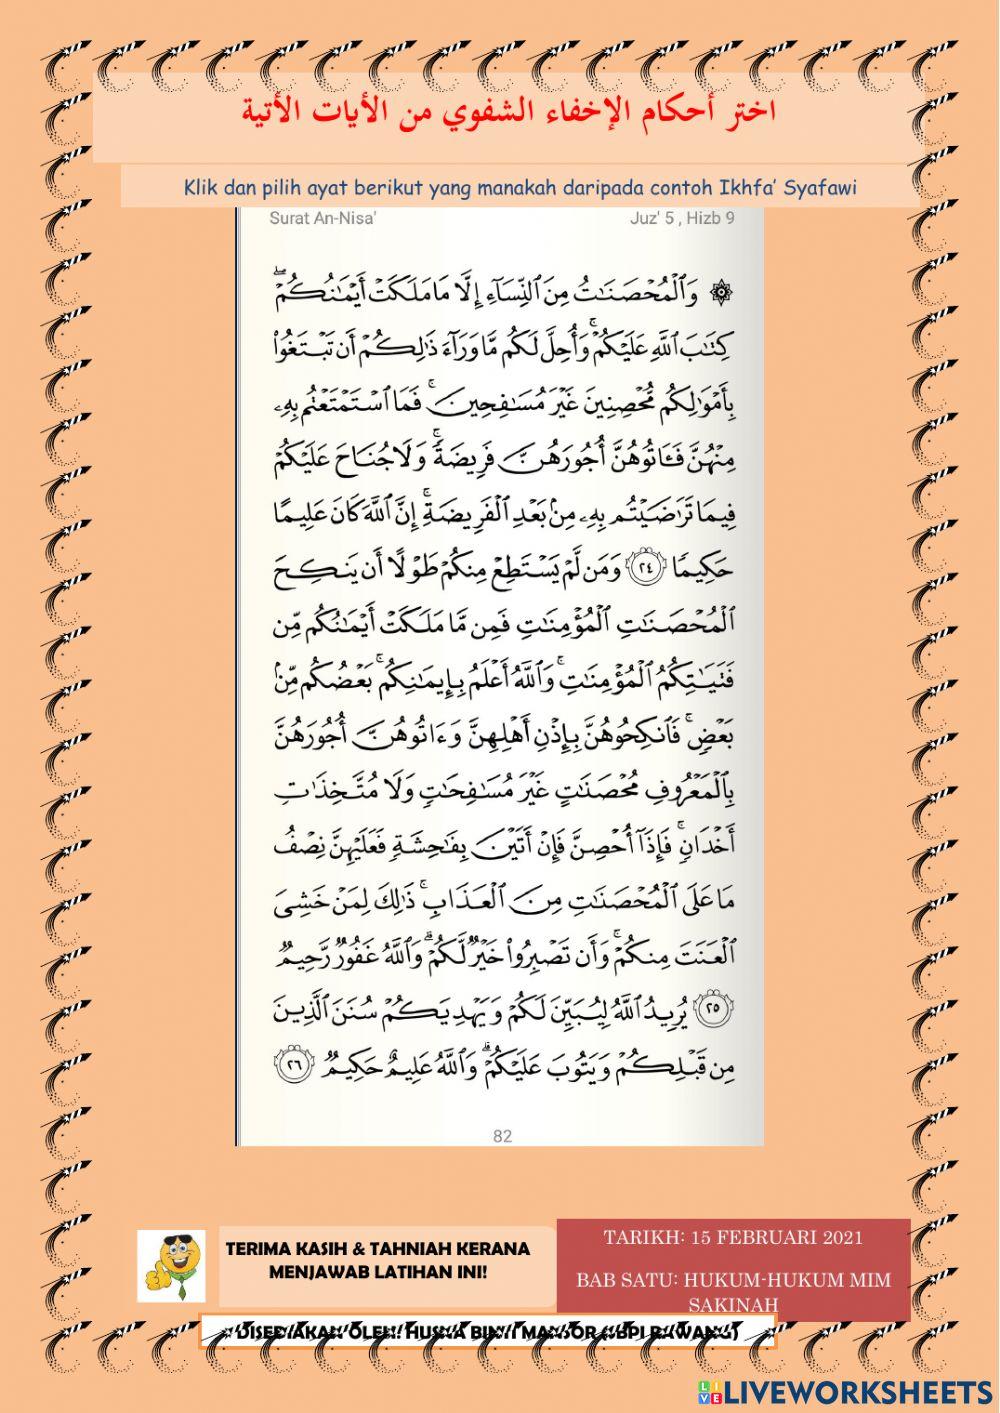 اختر أحكام الإخفاء الشفوي من الأيات الأتية
Klik dan pilih ayat berikut yang manakah daripada contoh Ikhfa’ Syafawi
Surat An-Nisa' Juz' 5 , Hizb 9
۞ وَٱلْمُحْصَنَٰتُ مِنَ ٱلنِّسَآءِ إِلَّا مَا مَلَكَتْ أَيْمَٰنُكُمْ ۖ
كِتَٰبَ ٱللَّهِ عَلَيْكُمْ ۚ وَأُحِلَّ لَكُم مَّا وَرَآءَ ذَٰلِكُمْ أَن تَبْتَغُوا۟
بِأَمْوَٰلِكُم مُّحْصِنِينَ غَيْرَ مُسَٰفِحِينَ ۚ فَمَا ٱسْتَمْتَعْتُم بِهِۦ
مِنْهُنَّ فَـَٔاتُوهُنَّ أُجُورَهُنَّ فَرِيضَةً ۚ وَلَا جُنَاحَ عَلَيْكُمْ
فِيمَا تَرَٰضَيْتُم بِهِۦ مِنۢ بَعْدِ ٱلْفَرِيضَةِ ۚ إِنَّ ٱللَّهَ كَانَ عَلِيمًا
حَكِيمًا ٢٤ وَمَن لَّمْ يَسْتَطِعْ مِنكُمْ طَوْلًا أَن يَنكِحَ
ٱلْمُحْصَنَٰتِ ٱلْمُؤْمِنَٰتِ فَمِن مَّا مَلَكَتْ أَيْمَٰنُكُم مِّن
فَتَيَٰتِكُمُ ٱلْمُؤْمِنَٰتِ ۚ وَٱللَّهُ أَعْلَمُ بِإِيمَٰنِكُم ۚ بَعْضُكُم مِّنۢ
بَعْضٍ ۚ فَٱنكِحُوهُنَّ بِإِذْنِ أَهْلِهِنَّ وَءَاتُوهُنَّ أُجُورَهُنَّ
بِٱلْمَعْرُوفِ مُحْصَنَٰتٍ غَيْرَ مُسَٰفِحَٰتٍ وَلَا مُتَّخِذَٰتِ
أَخْدَانٍ ۚ فَإِذَآ أُحْصِنَّ فَإِنْ أَتَيْنَ بِفَٰحِشَةٍ فَعَلَيْهِنَّ نِصْفُ
مَا عَلَى ٱلْمُحْصَنَٰتِ مِنَ ٱلْعَذَابِ ۚ ذَٰلِكَ لِمَنْ خَشِىَ
ٱلْعَنَتَ مِنكُمْ ۚ وَأَن تَصْبِرُوا۟ خَيْرٌ لَّكُمْ ۗ وَٱللَّهُ غَفُورٌ رَّحِيمٌ
٢٥ يُرِيدُ ٱللَّهُ لِيُبَيِّنَ لَكُمْ وَيَهْدِيَكُمْ سُنَنَ ٱلَّذِينَ
مِن قَبْلِكُمْ وَيَتُوبَ عَلَيْكُمْ ۗ وَٱللَّهُ عَلِيمٌ حَكِيمٌ ٢٦
82
TERIMA KASIH & TAHNIAH KERANA
MENJAWAB LATIHAN INI!
TARIKH: 15 FEBRUARI 2021
BAB SATU: HUKUM-HUKUM MIM
SAKINAH
DISEDIAKAN OLEH: HUSNA BINTI MANSOR (SBPI RAWANG)
LIVEWORKSHEETS